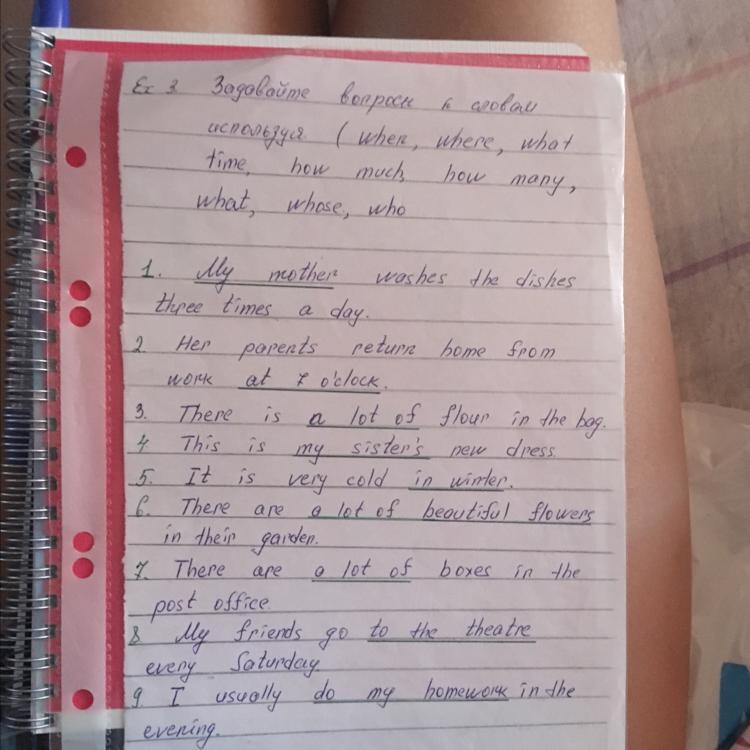 Ex 3. Задавайте вопросы к словам
используя ( when, where, what
time, how much, how many,
what, whose, who
1. My mother washes the dishes
three times a day.
2. Her parents return home from
work at 7 o'clock.
3. There is a lot of flour in the bag.
4. This is my sister's new dress.
5. It is very cold in winter.
6. There are a lot of beautiful flowers
in their garden.
7. There are a lot of boxes in the
post office.
8 My friends go to the theatre
every Saturday
9. I usually do my homework in the
evening.